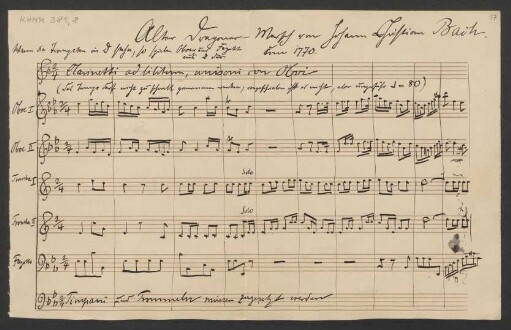 KHMM 381, 8
57
Alter Dragoner Marsch von Johann Christian Bach.
Wenn die Trompeten in D stehen, so spielen Oboen und Fagotte
um 1770.
mit D dur
Clarinetti ad libitum, unisoni con Oboi
(Das Tempo darf nicht zu schnell genommen werden, empfehlen ist es nicht, als ungefähr = 80)
Oboe I
Oboe II
Tromba I
Solo
Tromba II
Solo
Fagotte
Timpani und Trommeln müssen zugesetzt werden